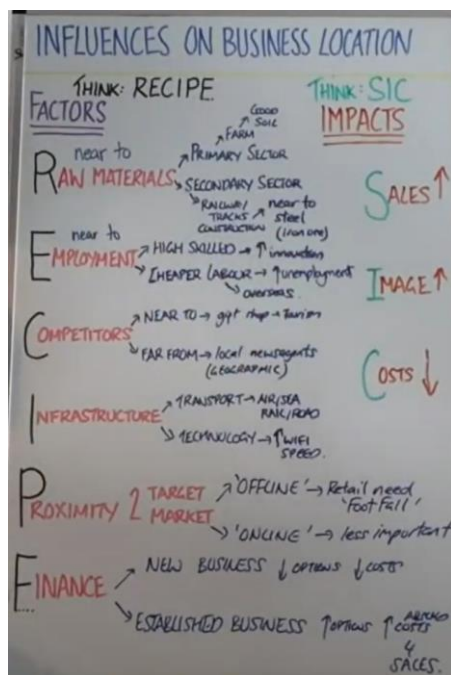 INFLUENCES ON BUSINESS LOCATION
THINK: RECIPE
THINK: SIC
FACTORS
IMPACTS
near to
RAW MATERIALS
↗ PRIMARY SECTOR
↗ FARM
↗ GOOD SOIL
↘ SECONDARY SECTOR
↘ RAILWAY TRACKS CONSTRUCTION ↗ near to steel (iron ore)
SALES ↑
near to
EMPLOYMENT
↗ HIGH SKILLED → ↑ innovation
↘ CHEAPER LABOUR → ↑ unemployment
↘ overseas.
IMAGE ↑
COMPETITORS
↗ NEAR TO → gift shop → tourism
↘ FAR FROM → local newsagents
(GEOGRAPHIC)
COSTS ↓
INFRASTRUCTURE
↗ TRANSPORT → AIR/SEA
RAIL/ROAD
↘ TECHNOLOGY → ↑ WIFI
SPEED.
PROXIMITY 2 TARGET MARKET
↗ 'OFFLINE' → Retail need
'Foot Fall'
↘ 'ONLINE' → less important
FINANCE
↗ NEW BUSINESS ↓ OPTIONS ↓ COSTS
↘ ESTABLISHED BUSINESS ↑ OPTIONS ↑ COSTS
SALES.